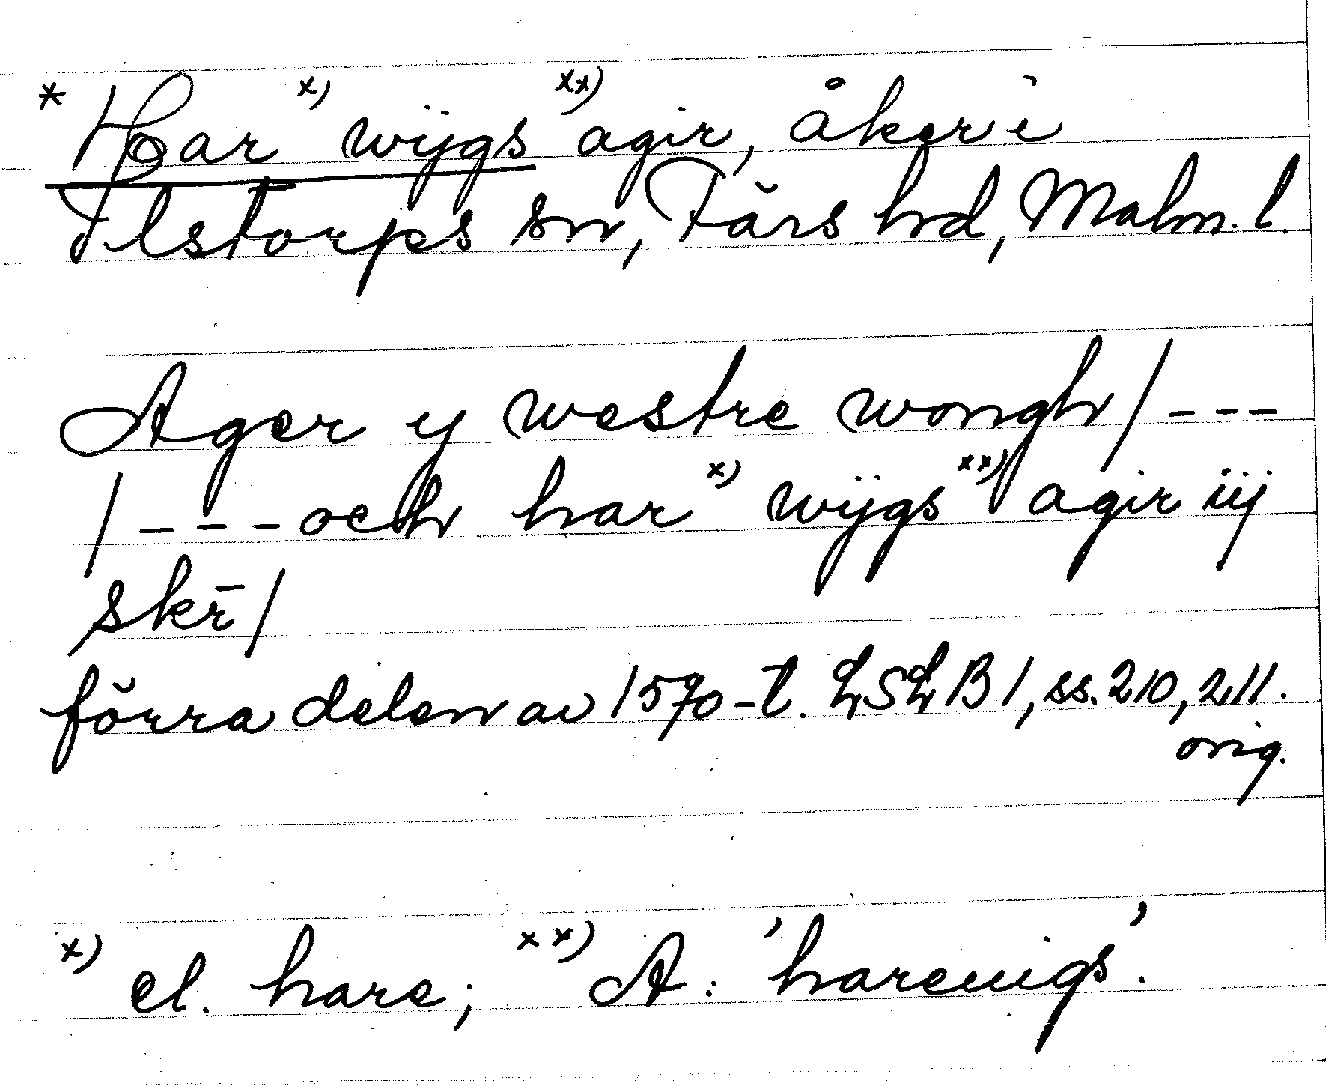 * Har x) wijgs xx) agir, åker i
Ilstorps sn, Färs hd, Malm. l.
Ager y westre wongh / - - -
/ - - - och har x) wijgs xx) agir iij
skr̄ /
förra delen av 1570-t. LSLB1, ss. 210, 211.
orig.
x) el. hare; xx) A: 'harewigs'.